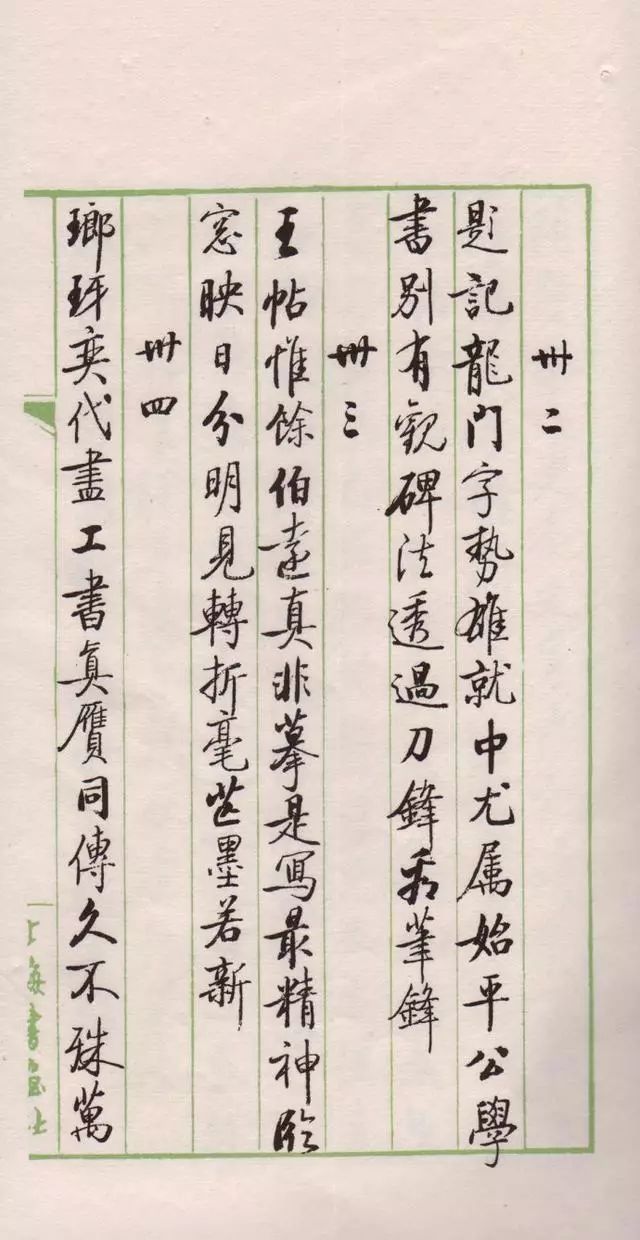 卅二
題記龍門字勢雄就中尤属始平公學
書别有觀碑法透過刀鋒看筆鋒
卅三
王帖惟餘伯遠真非摹是寫最精神臨
窓映日分明見轉折毫芒墨若新
卅四
瑯琊奕代盡工書真贋同傳久不殊萬
上海書畫社